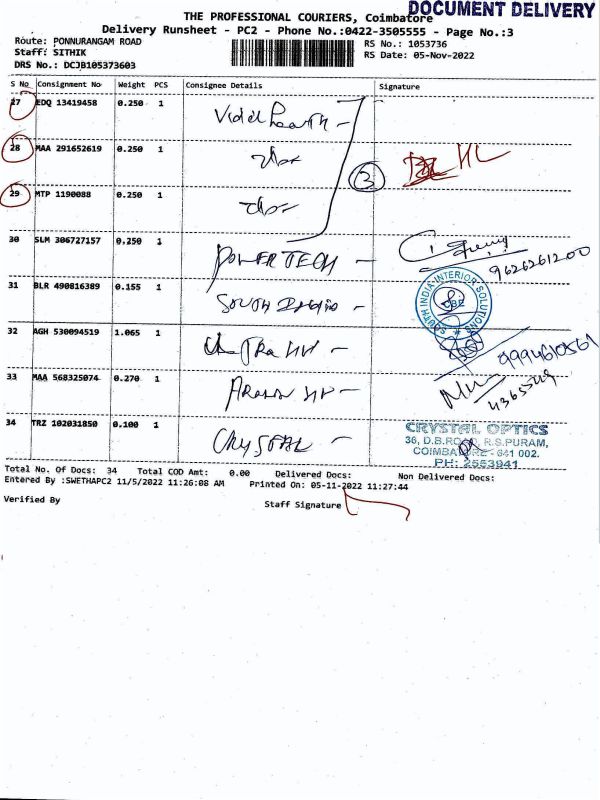 DOCUMENT DELIVERY
THE PROFESSIONAL COURIERS, Coimbatore
Delivery Runsheet - PC2 - Phone No.:0422-3505555 - Page No.:3
Route: PONNURANGAM ROAD
RS No.: 1053736
Staff: SITHIK
RS Date: 05-Nov-2022
DRS No.: DCJB105373603
S No Consignment No Weight PCS Consignee Details Signature
27 EDQ 13419458 0.250 1
28 MAA 291652619 0.250 1
3
29 MTP 1190088 0.250 1
30 SLM 306727157 0.250 1 POWER TECH -
9626261200
31 BLR 490816389 0.155 1 SOUTH
SOUTH INDIA INTERIOR SOLUTIONS
CBE
32 AGH 530094519 1.065 1
33 MAA 568325074 0.270 1
34 TRZ 102031850 0.100 1 CRYSTAL -
CRYSTAL OPTICS
36, D.B.ROAD, R.S.PURAM,
COIMBATORE - 641 002.
PH: 2553941
Total No. Of Docs: 34 Total COD Amt: 0.00 Delivered Docs: Non Delivered Docs:
Entered By :SWETHAPC2 11/5/2022 11:26:08 AM Printed On: 05-11-2022 11:27:44
Verified By
Staff Signature